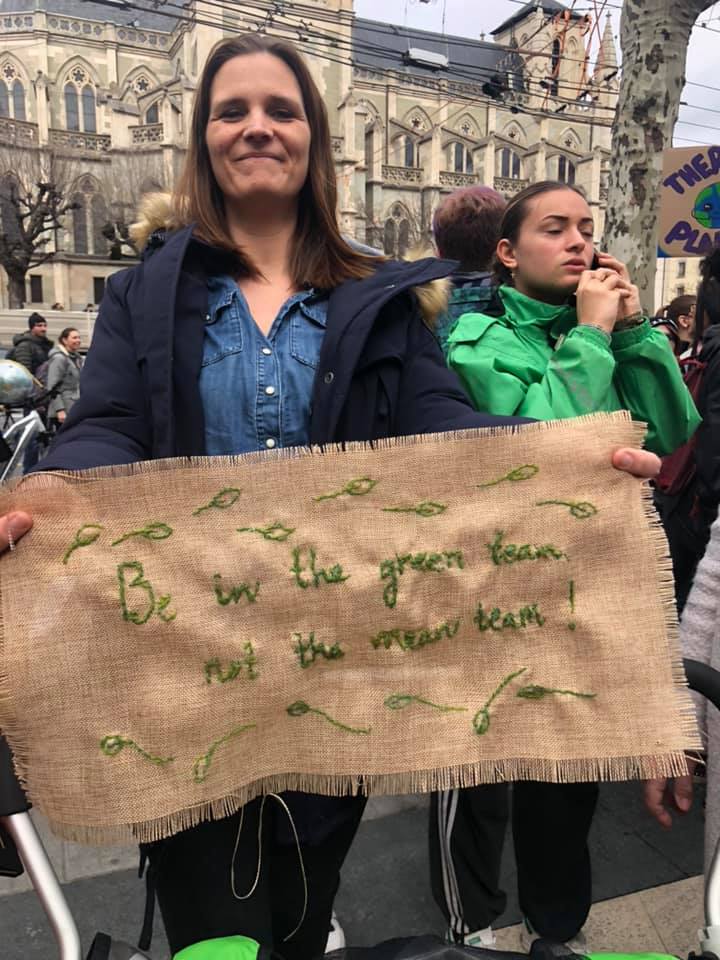 Be in the green team,
not the mean team!
THE
PLA